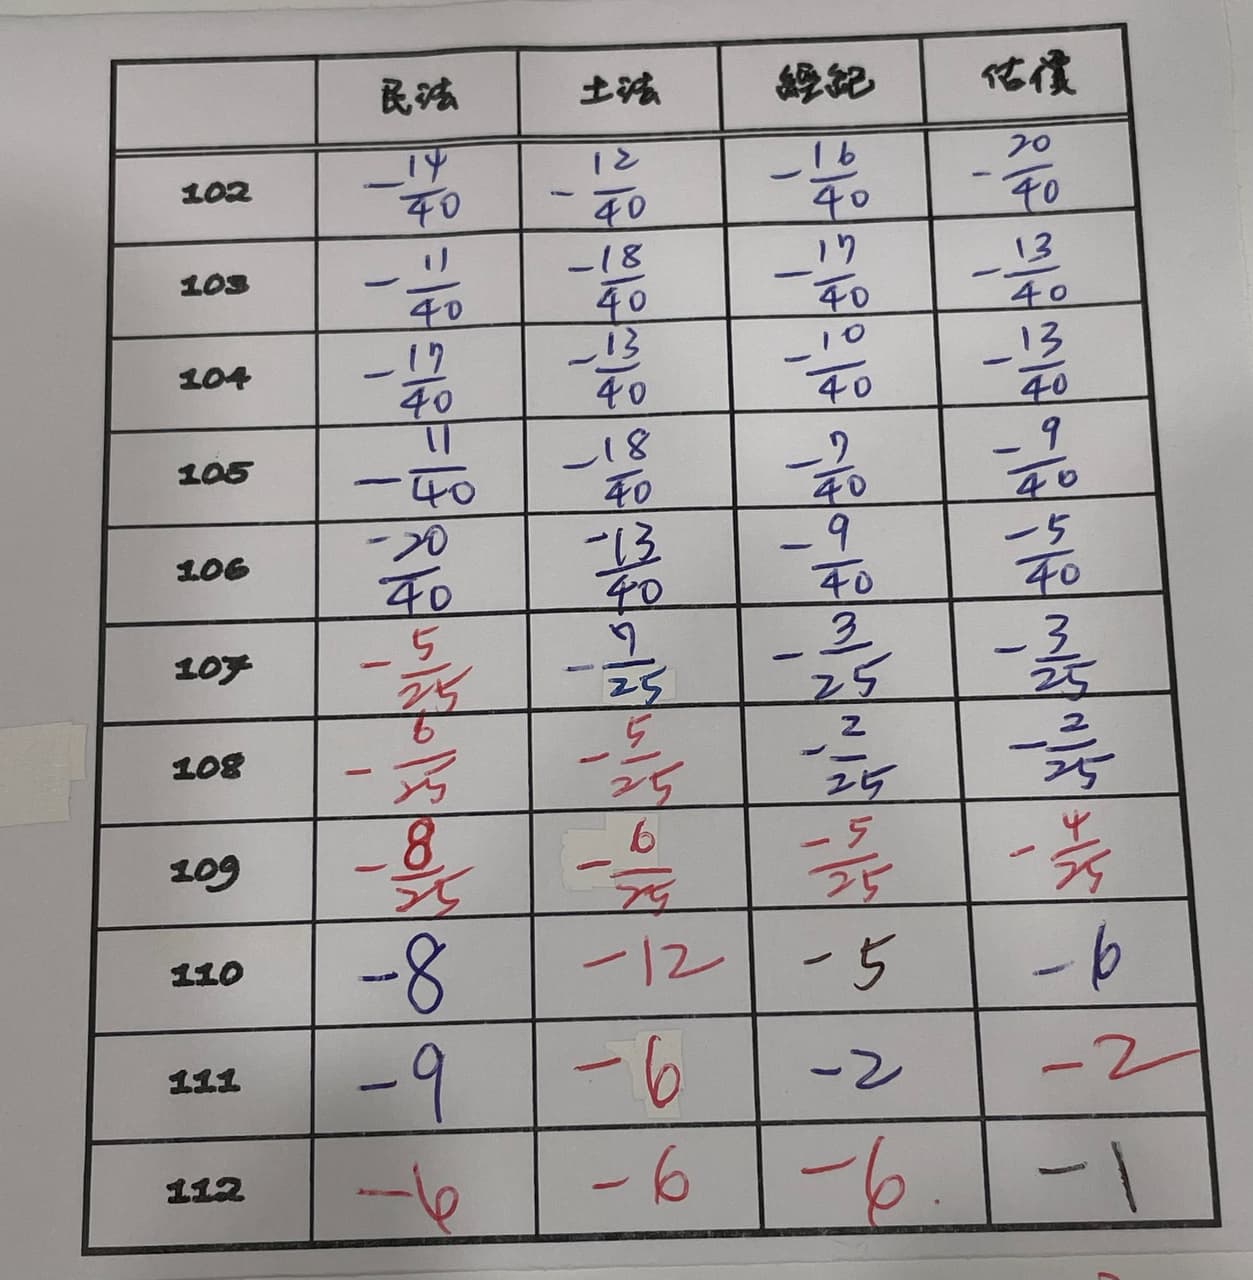 民法 土法 經紀 估價
102 -14/40 -12/40 -16/40 -20/40
103 -11/40 -18/40 -17/40 -13/40
104 -17/40 -13/40 -10/40 -13/40
105 -11/40 -18/40 -7/40 -9/40
106 -20/40 -13/40 -9/40 -5/40
107 -5/25 -7/25 -3/25 -3/25
108 -6/25 -5/25 -2/25 -2/25
109 -8/25 -6/25 -5/25 -4/25
110 -8 -12 -5 -6
111 -9 -6 -2 -2
112 -6 -6 -6 -1